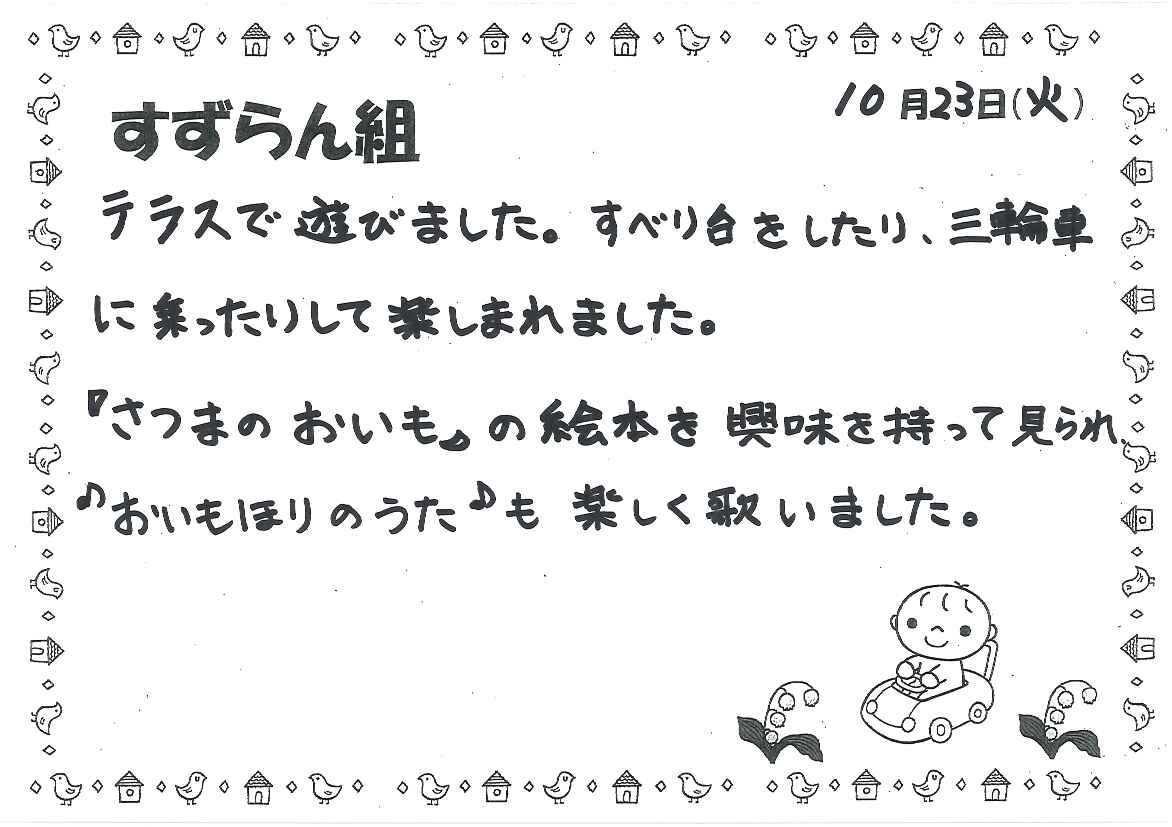 10月23日(火)
すずらん組
テラスで遊びました。すべり台をしたり、三輪車
に乗ったりして楽しまれました。
『さつまのおいも』の絵本を興味を持って見られ、
♪おいもほりのうた♪も楽しく歌いました。